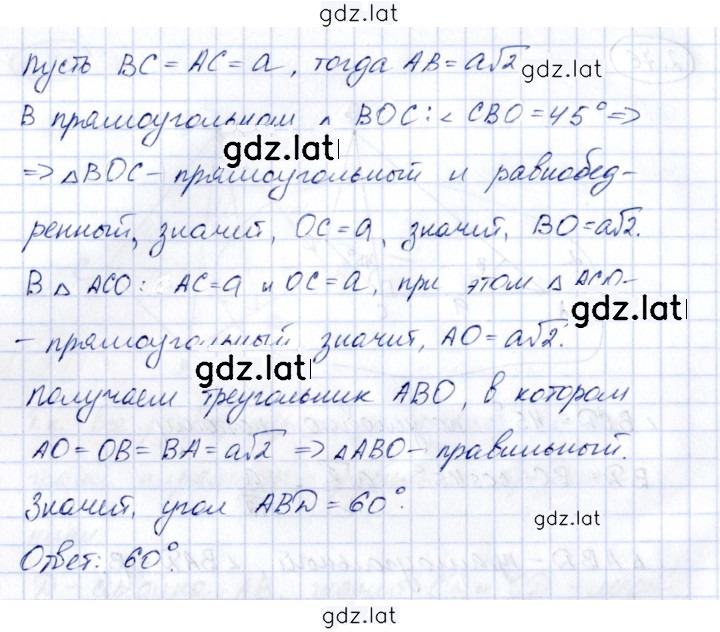 gdz.lat
Пусть BC = AC = a, тогда AB = a√2
gdz.lat
В прямоугольном △ BOC: ∠ CBO = 45° ⇒
gdz.lat
⇒ △BOC - прямоугольный и равнобед-
ренный, значит, OC = a, значит, BO = a√2.
В △ ACO: AC = a и OC = a, при этом △ ACO-
gdz.lat
- прямоугольный значит, AO = a√2.
gdz.lat
Получаем треугольник ABO, в котором
AO = OB = BA = a√2 ⇒ △ABO - правильный.
Значит, угол ABD = 60°.
gdz.lat
Ответ: 60°.
gdz.lat